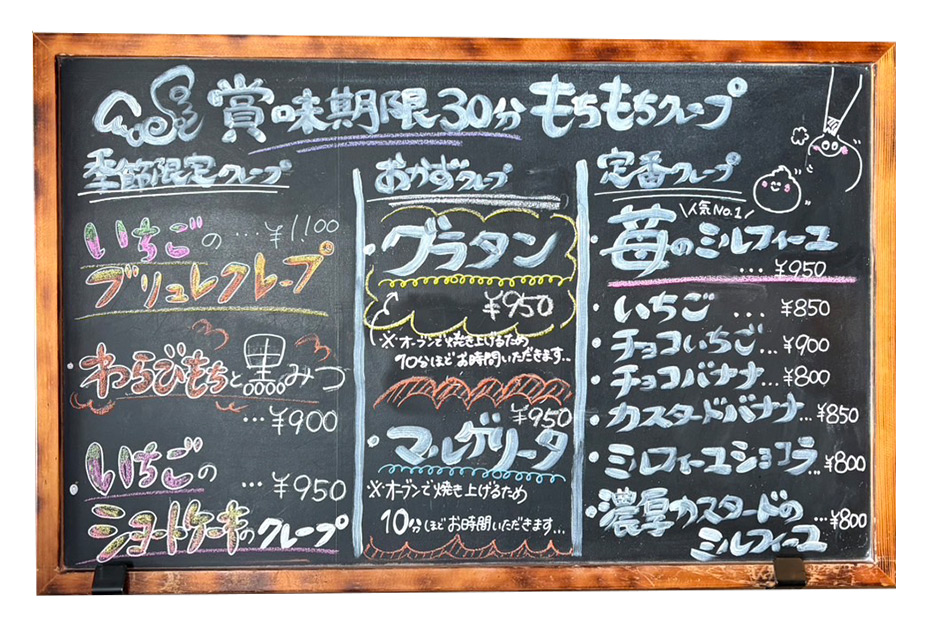 賞味期限30分 もちもちクレープ
季節限定クレープ
いちごの …¥1,100
ブリュレクレープ
わらびもちと黒みつ
…¥900
いちごの …¥950
ショートケーキのクレープ
おかずクレープ
グラタン
¥950
※オーブンで焼き上げるため
10分ほどお時間いただきます…
¥950
マルゲリータ
※オーブンで焼き上げるため
10分ほどお時間いただきます…
定番クレープ
\人気No.1/
苺のミルフィーユ
…¥950
いちご …¥850
チョコいちご…¥900
チョコバナナ…¥800
カスタードバナナ…¥850
ミルフィーユショコラ…¥800
濃厚カスタードの …¥800
ミルフィーユ